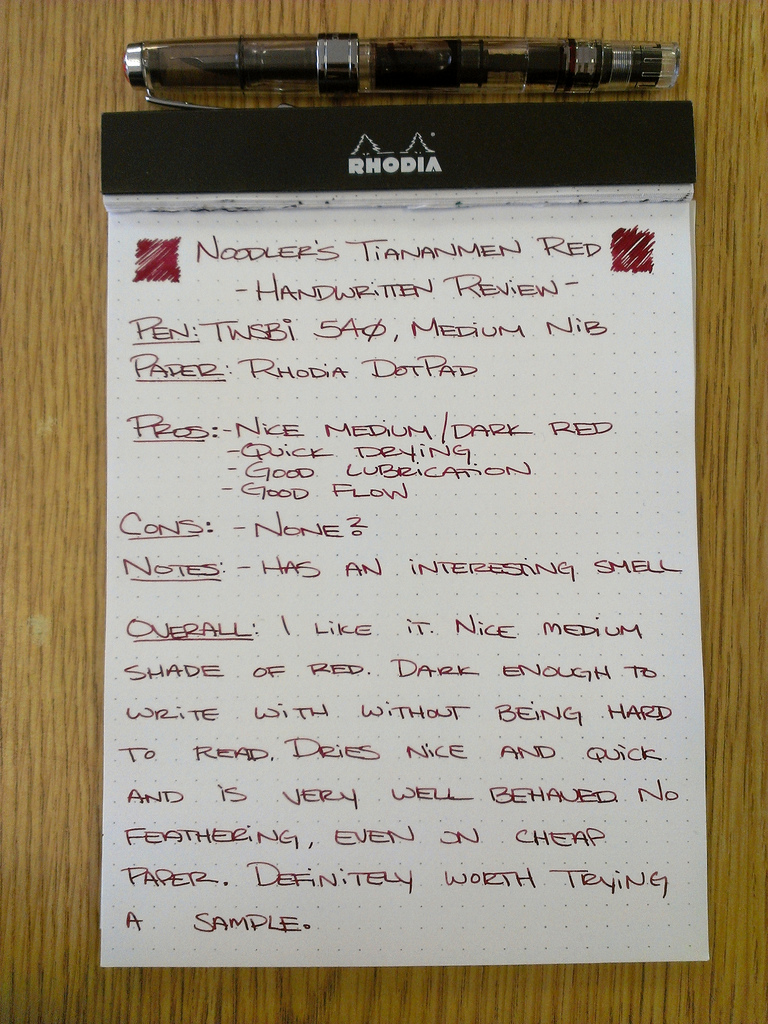 RHODIA
NOODLER'S TIANANMEN RED
- HANDWRITTEN REVIEW -
PEN: TWSBI 540, MEDIUM NIB
PAPER: RHODIA DOTPAD
PROS: - NICE MEDIUM/DARK RED
- QUICK DRYING
- GOOD LUBRICATION
- GOOD FLOW
CONS: - NONE?
NOTES: - HAS AN INTERESTING SMELL
OVERALL: I LIKE IT. NICE MEDIUM
SHADE OF RED. DARK ENOUGH TO
WRITE WITH WITHOUT BEING HARD
TO READ. DRIES NICE AND QUICK
AND IS VERY WELL BEHAVED. NO
FEATHERING, EVEN ON CHEAP
PAPER. DEFINITELY WORTH TRYING
A SAMPLE.